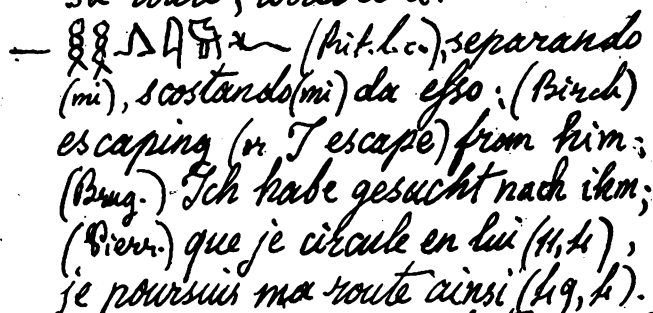 sa route,
— (Rit. l. c.), separando
(mi), scostando (mi) da esso; (Birch)
escaping (or I escape) from him;
(Brug.) Ich habe gesucht nach ihm;
(Pierr.) que je circule en lui (11,4),
je poursuis ma route ainsi (49,4).